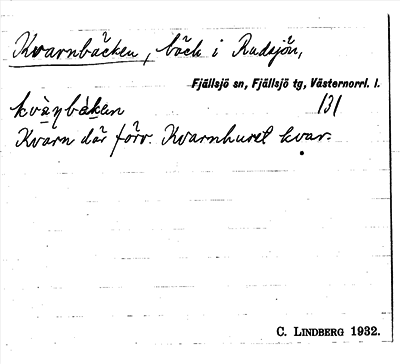 Kvarnbäcken, bäck i Rudsjön,
Fjällsjö sn, Fjällsjö tg, Västernorrl. l.
131
Kvarn där förr. Kvarnhuset kvar.
C. LINDBERG 1932.